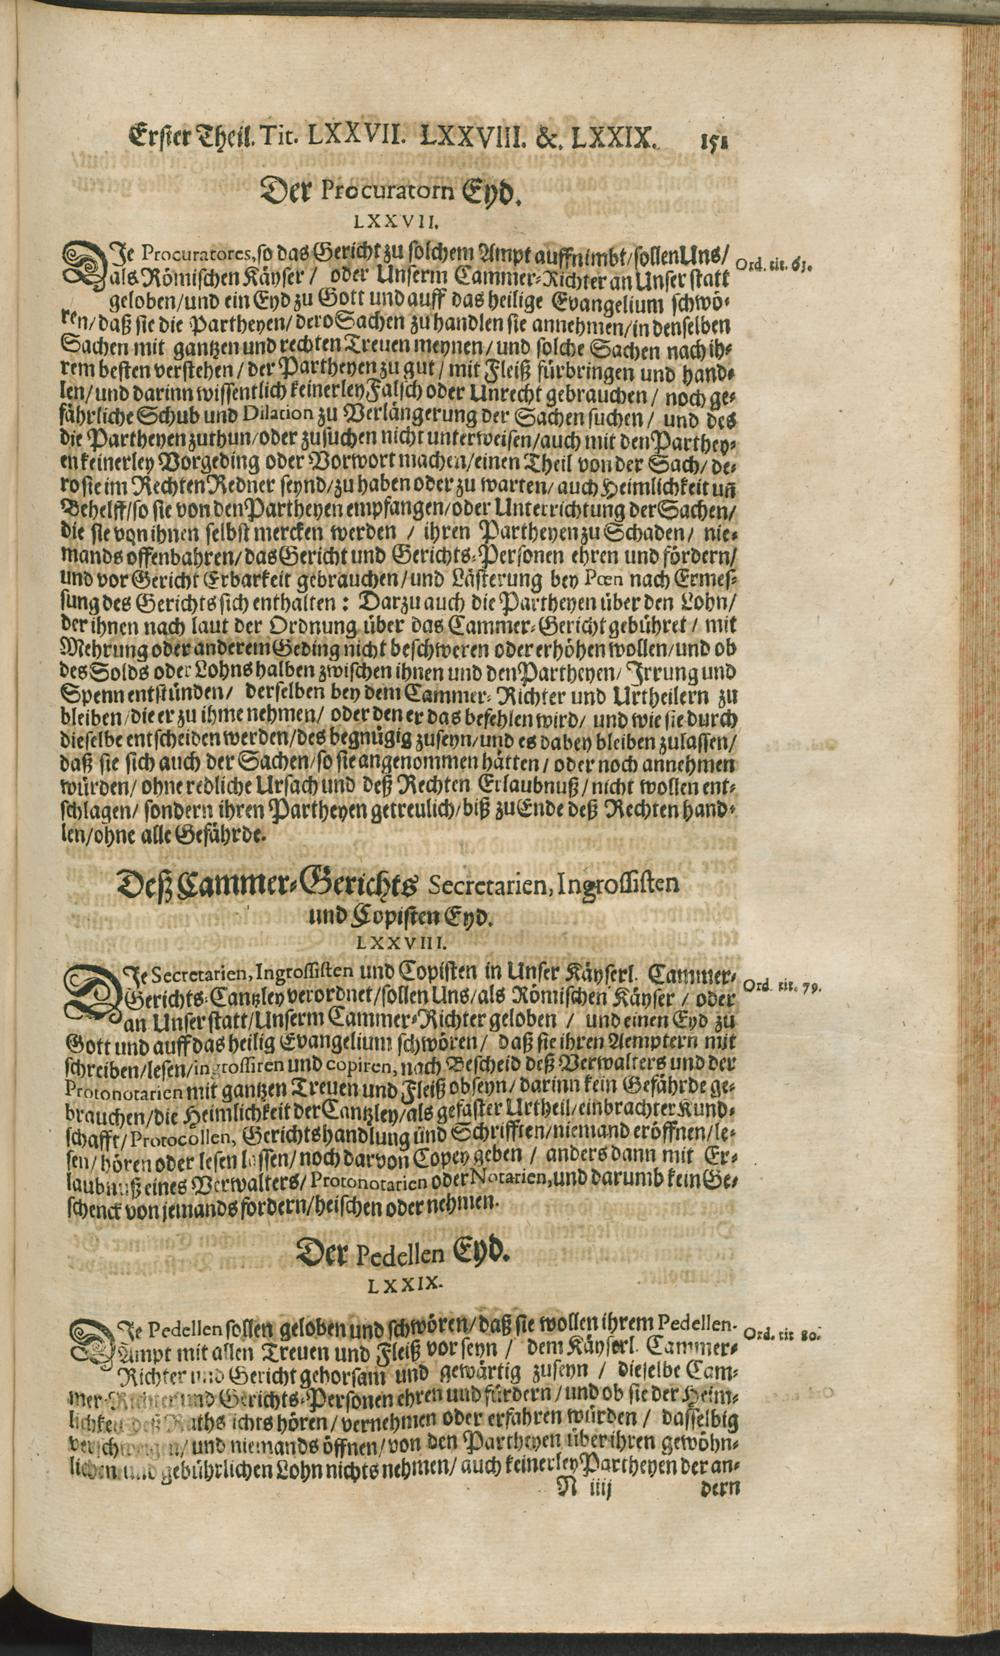 Erster Theil. Tit. LXXVII. LXXVIII. &. LXXIX. 151
Der Procuratorn Eyd.
LXXVII.
DJe Procuratores, so das Gericht zu solchem Ampt auffnimbt/ sollen Uns/
als Römischen Käyser / oder Unserm Cammer-Richter an Unser statt
geloben/ und ein Eyd zu Gott und auff das heilige Evangelium schwö-
ren/ daß sie die Partheyen/ dero Sachen zu handlen sie annehmen/ in denselben
Sachen mit gantzen und rechten Treuen meynen/ und solche Sachen nach ih-
rem besten verstehen/ der Partheyen zu gut/ mit Fleiß fürbringen und hand-
len/ und darinn wissentlich keinerley Falsch oder Unrecht gebrauchen/ noch ge-
fährliche Schub und Dilation zu Verlängerung der Sachen suchen/ und des
die Partheyen zuthun/ oder zu suchen nicht unterweisen/ auch mit den Parthey-
en keinerley Vorgeding oder Vorwort machen/ einen Theil von der Sach/ de-
ro sie im Rechten Redner seynd/ zu haben oder zu warten/ auch Heimlichkeit uñ
Behelff/ so sie von den Partheyen empfangen/ oder Unterrichtung der Sachen/
die sie von ihnen selbst mercken werden / ihren Partheyen zu Schaden/ nie-
mands offenbahren/ das Gericht und Gerichts-Personen ehren und fördern/
und vor Gericht Erbarkeit gebrauchen/ und Lästerung bey Pœn nach Ermes-
sung des Gerichts sich enthalten: Darzu auch die Partheyen über den Lohn/
der ihnen nach laut der Ordnung über das Cammer-Gericht gebühret/ mit
Mehrung oder anderem Geding nicht beschweren oder erhöhen wollen/ und ob
des Solds oder Lohns halben zwischen ihnen und den Partheyen/ Jrrung und
Spenn entstünden/ derselben bey dem Cammer-Richter und Urtheilern zu
bleiben/ die er zu ihme nehmen/ oder den er das befehlen wird/ und wie sie durch
dieselbe entscheiden werden/ des begnügig zuseyn/ und es dabey bleiben zulassen/
daß sie sich auch der Sachen/ so sie angenommen hätten/ oder noch annehmen
würden/ ohne redliche Ursach und deß Rechten Erlaubnuß/ nicht wollen ent-
schlagen/ sondern ihren Partheyen getreulich/ biß zu Ende deß Rechten hand-
len/ ohne alle Gefährde.
Ord. tit. 63.
Deß Cammer-Gerichts Secretarien, Ingrossisten
und Copisten Eyd.
LXXVIII.
DJe Secretarien, Ingrossisten und Copisten in Unser Käyserl. Cammer-
Gerichts-Cantzley verordnet/ sollen Uns/ als Römischen Käyser / oder
an Unser statt/ Unserm Cammer-Richter geloben / und einen Eyd zu
Gott und auff das heilig Evangelium schwören/ daß sie ihren Aemptern mit
schreiben/ lesen/ ingrossiren und copiren, nach Bescheid deß Verwalters und der
Protonotarien mit gantzen Treuen und Fleiß obseyn/ darinn kein Gefährde ge-
brauchen/ die Heimlichkeit der Cantzley/ als gefaster Urtheil/ einbrachter Kund-
schafft/ Protocollen, Gerichtshandlung und Schrifften/ niemand eröffnen/ le-
sen/ hören oder lesen lassen/ noch darvon Copey geben / anders dann mit Er-
laubnuß eines Verwalters/ Protonotarien oder Notarien, und darumb kein Ge-
schenck von jemands fordern/ heischen oder nehmen.
Ord. tit. 79.
Der Pedellen Eyd.
LXXIX.
DJe Pedellen sollen geloben und schwören/ daß sie wollen ihrem Pedellen-
Ampt mit allen Treuen und Fleiß vor seyn / dem Käyserl. Cammer-
Richter und Gericht gehorsam und gewärtig zuseyn / dieselbe Cam-
mer-Richter und Gerichts-Personen ehren und fürdern/ und ob sie der Heim-
lichkeit deß Raths ichts hören/ vernehmen oder erfahren würden / dasselbig
verschweigen/ und niemands öffnen/ von den Partheyen über ihren gewöhn-
lichen und gebührlichen Lohn nichts nehmen/ auch keinerley Partheyen der an-
Ord. tit 80.
N iiij dern